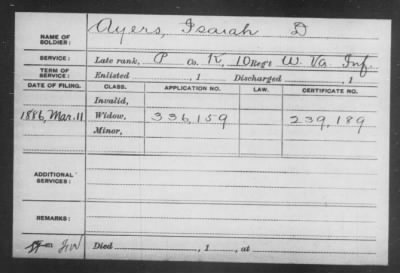 NAME OF SOLDIER: Ayers, Isaiah D
SERVICE: Late rank, P Co. K, 10 Reg't W. Va. Inf.
TERM OF SERVICE: Enlisted , 1 Discharged , 1
DATE OF FILING. CLASS. APPLICATION NO. LAW. CERTIFICATE NO.
Invalid,
1886, Mar. 11 Widow, 336,159 239,189
Minor,
ADDITIONAL SERVICES:
REMARKS:
Died , 1 , at